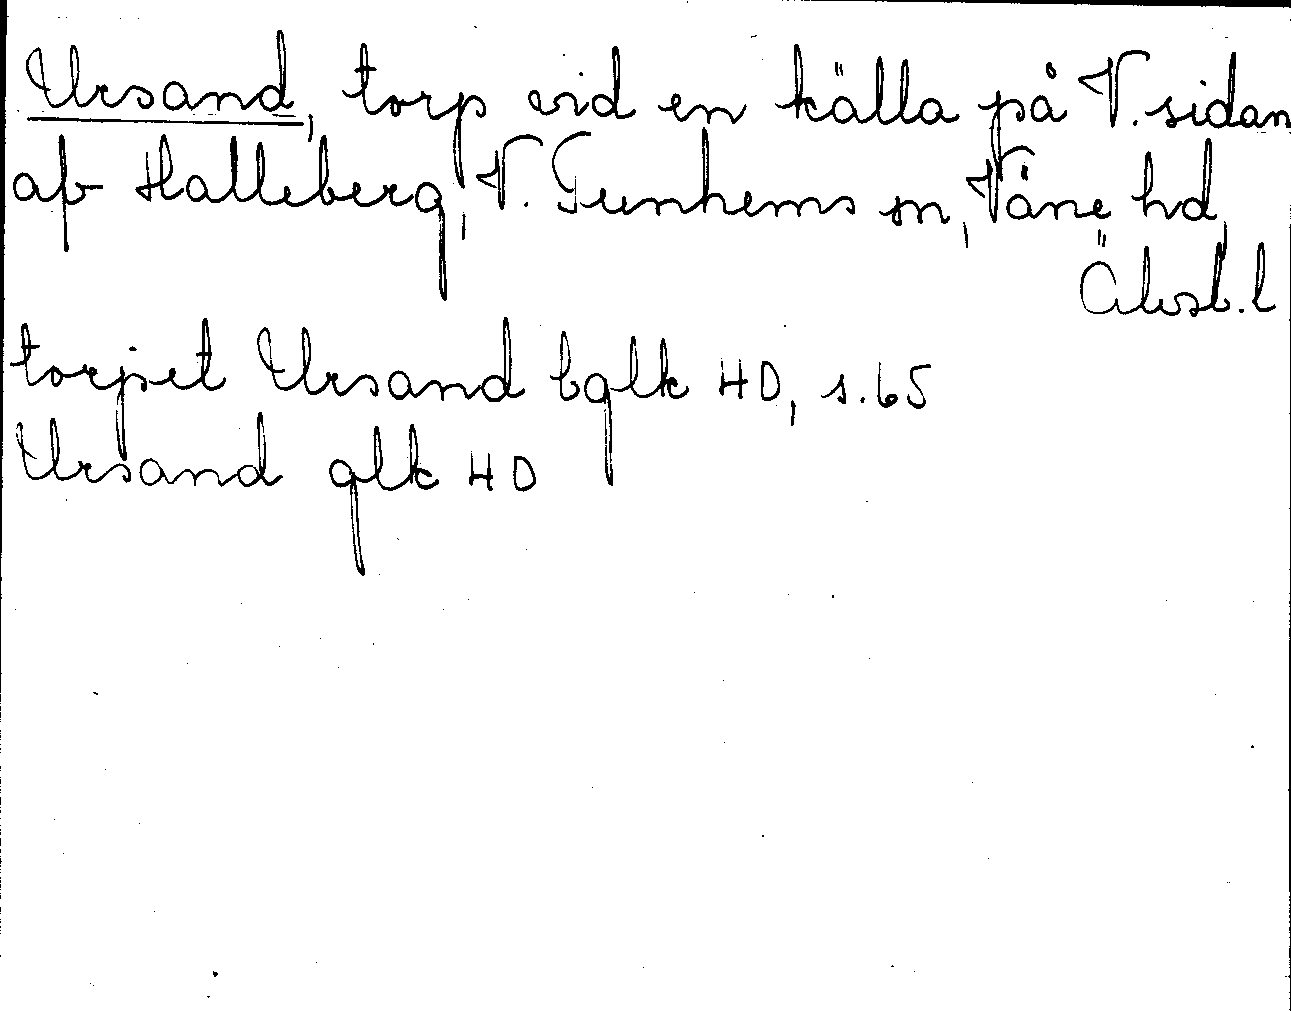 Ursand, torp vid en källa på V. sidan
af Halleberg, V. Tunhems sn, Väne hd,
Älvsb. l
torpet Ursand bglk 40, s. 65
Ursand glk 40